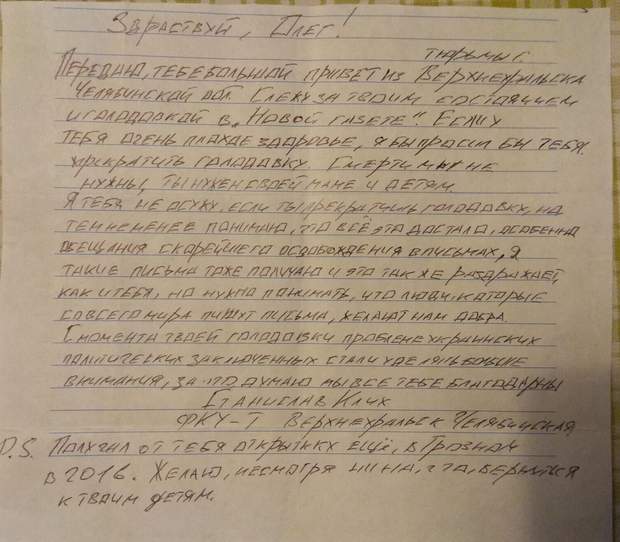 Здраствуй, Олег!
тюрьмы г.
Передаю, тебе большой привет из Верхнеуральска
Челябинской обл. Слежу за твоим состоянием
и голодовкой в „Новой газете". Если у
тебя очень плохое здоровье, я бы просил бы тебя.
прекратить голодовку. Смерти мы не
нужны, ты нужен своей маме и детям.
Я тебя не осужу, если ты прекратишь голодовку, но
тем не менее понимаю, что всё это достало, особенно
обещания скорейшего освобождения в письмах, я
такие письма тоже получаю и это так же раздражает,
как и тебя, но нужно понимать, что люди, которые
со всего мира пишут письма, желают нам добра.
С момента твоей голодовки проблеме украинских
политических заключенных стали уделять больше
внимания, за что думаю мы все тебе благодарны
Станислав Клых
ФКУ-Т Верхнеуральск Челябинская
P.S. Получал от тебя открытку ещё, в Грозном
в 2016. Желаю, несмотря ни на, что, вернуться
к твоим детям.